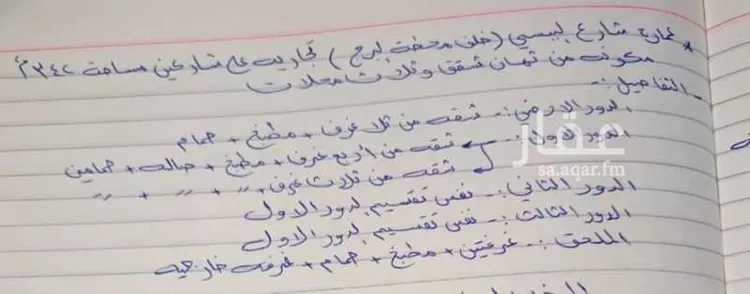 * عمارة شارع لبيسي (خلف محطة لبرج) تجارية على شارعين مساحة ٣٤٢م
مكونة من ثمان شقق وثلاث محلات
- التفاصيل :-
الدور الارضي :- شقه من ثلاث غرف + مطبخ + حمام
الدور لاول :- شقه من اربع غرف + مطبخ + صاله + حمامين
شقه من ثلاث غرف + " + " + "
الدور الثاني :- نفس تقسيم لدور الاول
الدور الثالث :- نفس تقسيم لدور الاول
الملحق :- غرفتين + مطبخ + حمام + غرفه خارجيه
عقار
sa.aqar.fm